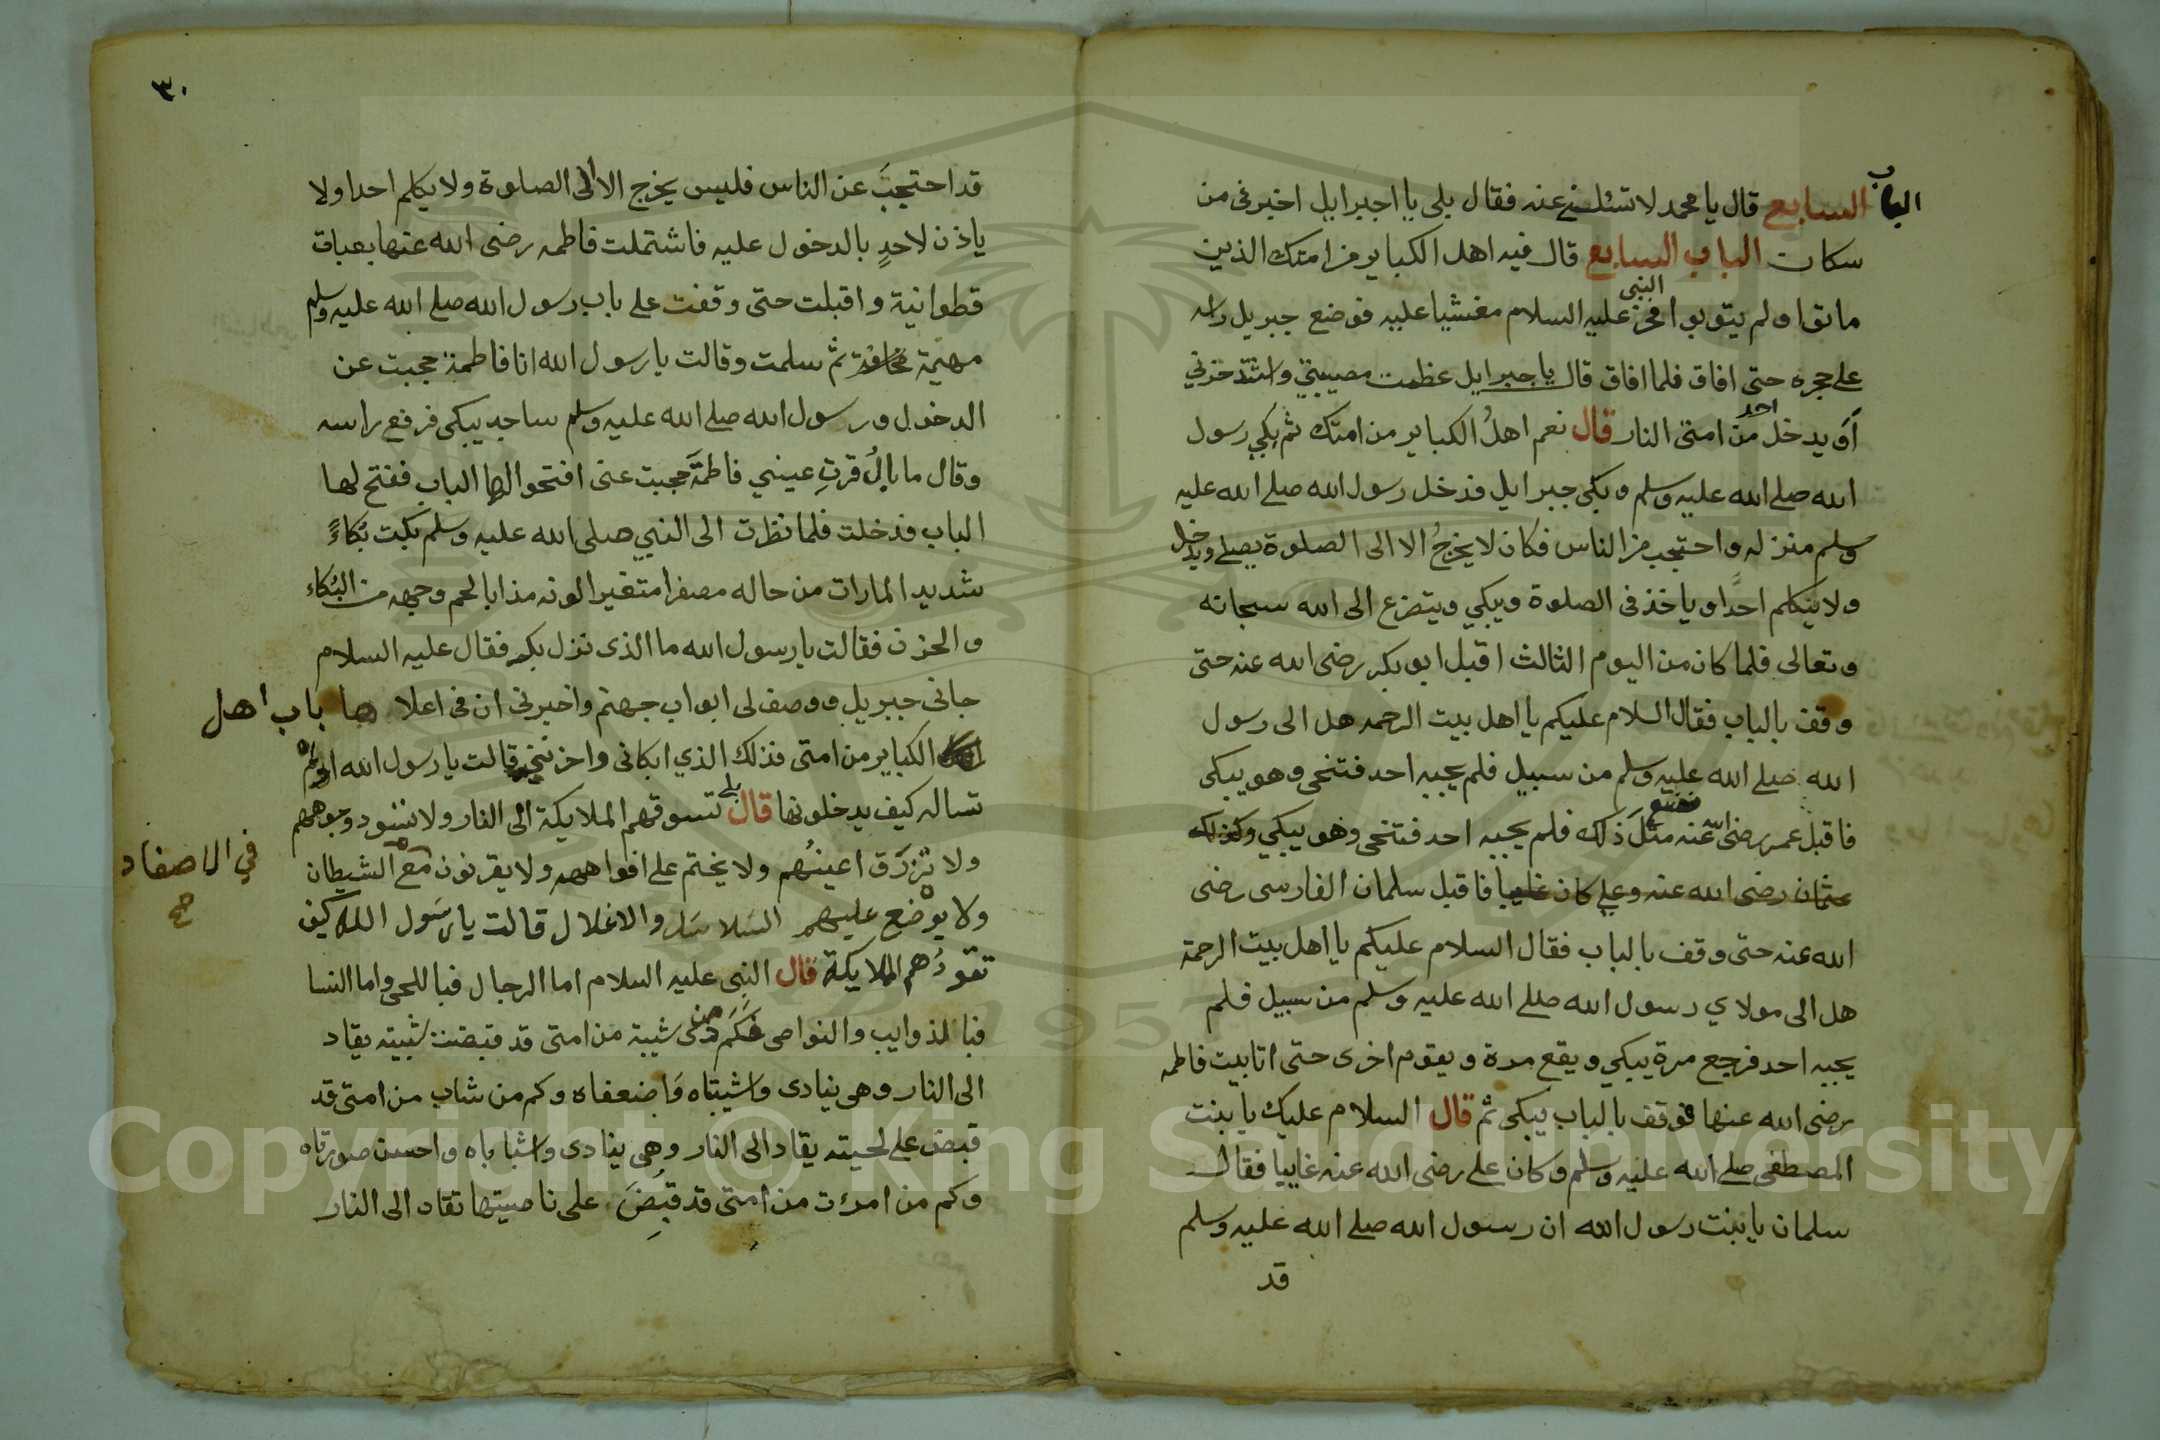 الباب السابع قال يا محمد لا تسئلنے عنه فقال بلى يا اجبرايل اخبرنى من
سكان الباب السابع قال فيه اهل الكباير من امتك الذين
ماتوا ولم يتوبوا فخر النبى عليه السلام مغشيا عليه فوضع جبريل راسه
على حجره حتى افاق فلما افاق قال يا جبرايل عظمت مصيبتي واشتد حزني
أو يدخل احد من امتى النار قال نعم اهل الكباير من امتك ثم بكي رسول
الله صلى الله عليه وسلم وبكى جبرايل فدخل رسول الله صلى الله عليه
وسلم منزله واحتجب من الناس فكان لا يخرج الا الى الصلوة يصلى ويدخل
ولا يتكلم احدًا وياخذ فى الصلوة ويبكي ويتضرع الى الله سبحانه
وتعالى فلما كان من اليوم الثالث اقبل ابو بكر رضى الله عنه حتى
وقف بالباب فقال السلام عليكم يا اهل بيت الرحمه هل الى رسول
الله صلى الله عليه وسلم من سبيل فلم يجبه احد فتنحى وهو يبكى
فاقبل عمر رضى الله عنه مثل ذلك فلم يجبه احد فتنحى وهو يبكي وكذلك
عثمان رضى الله عنه وعلي كان غايبا فاقبل سلمان الفارسى رضى
الله عنه حتى وقف بالباب فقال السلام عليكم يا اهل بيت الرحمة
هل الى مولاي رسول الله صلى الله عليه وسلم من سبيل فلم
يجبه احد فرجع مرة يبكي ويقع مرة ويقوم اخرى حتى اتا بيت فاطمه
رضى الله عنها فوقف بالباب يبكى ثم قال السلام عليك يا بنت
المصطفى صلى الله عليه وسلم وكان على رضى الله عنه غايبا فقال
سلمان يا بنت رسول الله ان رسول الله صلى الله عليه وسلم
قد
٣٠
قد احتجبَ عن الناس فليس يخرج الا الى الصلوة ولا يكلم احدا ولا
ياذن لاحدٍ بالدخول عليه فاشتملت فاطمه رضى الله عنها بعباة
قطوانية واقبلت حتى وقفت على باب رسول الله صلى الله عليه وسلم
ثم سلمت وقالت يا رسول الله انا فاطمة حجبت عن
الدخول ورسول الله صلى الله عليه وسلم ساجد يبكى فرفع راسه
وقال ما بالُ قرتِ عيني فاطمةَ حجبت عنى افتحوا لها الباب ففتح لها
الباب فدخلت فلما نظرت الى النبي صلى الله عليه وسلم بكت بُكاءً
شديدا لما رات من حاله مصفرا متغيرا لونه مذابا لحم وجهه من البُكاء
والحزن فقالت يا رسول الله ما الذى نزل بكم فقال عليه السلام
جانى جبريل ووصف لى ابواب جهنم واخبرنى ان فى اعلا ها باب اهل
الكباير من امتى فذلك الذي ابكانى واحزننى قالت يا رسول الله اولم
تساله كيف يدخلونها قال بلى تسوقهم الملايكة الى النار ولا تسود وجوههم
ولا تزرَق اعينُهم ولا يختم على افواههم ولا يقرنون مع الشيطان
في الاصفاد
صح
ولا يوضع عليهم السَلاسَل والاغلال قالت يا رسَول الله كيف
تقودُهم الملايكة قال النبى عليه السلام اما الرجال فباللحى واما النسا
فبالذوايب والنواصى فكَم من ذى شيبة من امتى قد قبضت شيبته يقاد
الى النار وهى ينادى واشيبتاه وَاضعفاه وكم من شاب من امتى قد
قبض على لحيته يقاد الى النار وهى ينادى واشباباه واحسن صورتاه
وكم من امرءت من امتى قد قبِضَ على ناصيتها تقاد الى النار
Copyright © King Saud University
1957